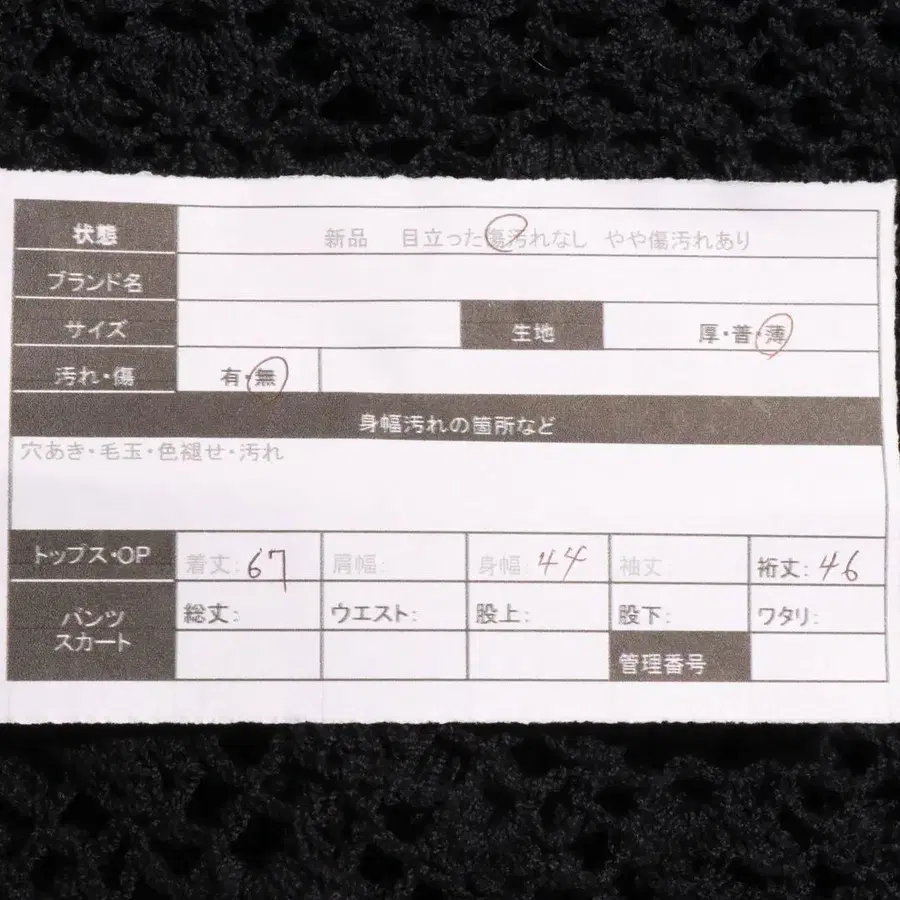 状態 新品 目立った傷汚れなし やや傷汚れあり
ブランド名
サイズ 生地 厚・普・薄
汚れ・傷 有・無
身幅汚れの箇所など
穴あき・毛玉・色褪せ・汚れ
トップス・OP 着丈: 67 肩幅: 身幅: 44 袖丈: 裄丈: 46
パンツ スカート 総丈: ウエスト: 股上: 股下: ワタリ:
管理番号